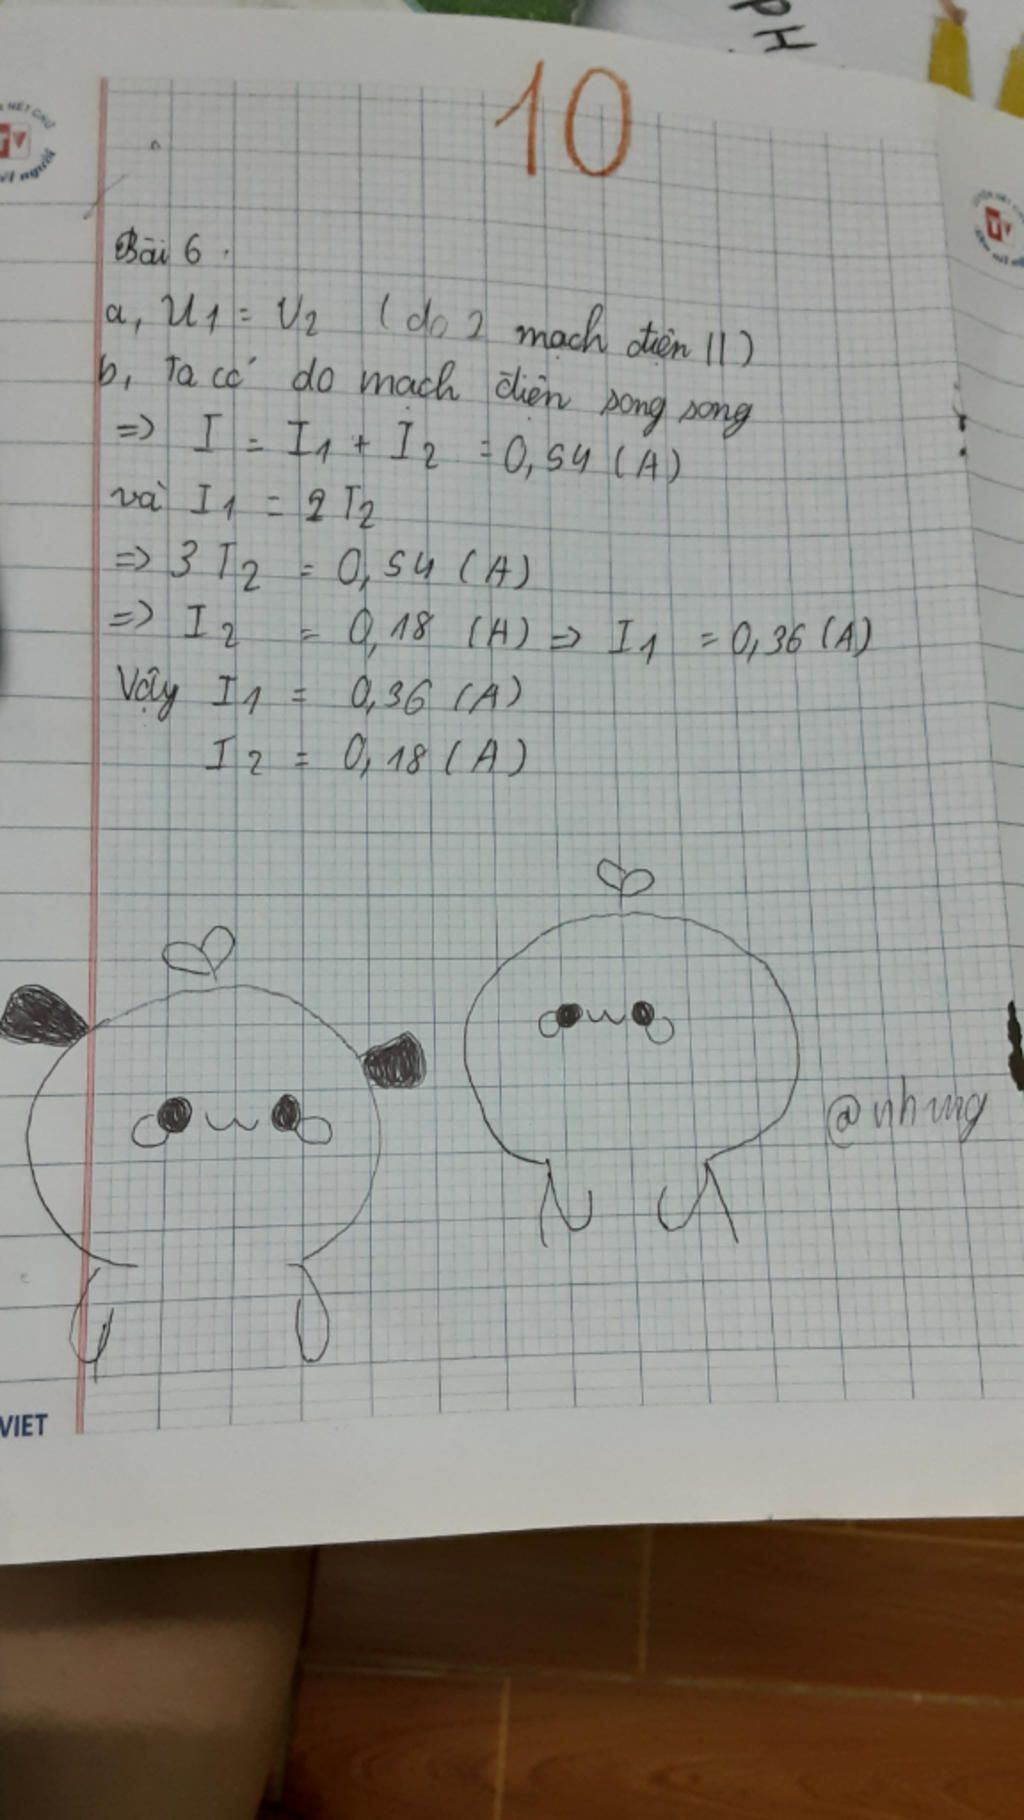 PH
10
TV
Bài 6.
a, U1 = U2 (do 2 mạch điện //)
b, Ta có do mạch điện song song
=> I = I1 + I2 = 0,54 (A)
và I1 = 2 I2
=> 3 I2 = 0,54 (A)
=> I2 = 0,18 (A) => I1 = 0,36 (A)
Vậy I1 = 0,36 (A)
I2 = 0,18 (A)
@nhung
VIET